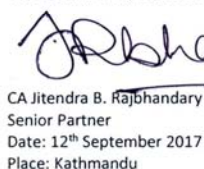 CA Jitendra B. Rajbhandary
Senior Partner
Date: 12th September 2017
Place: Kathmandu